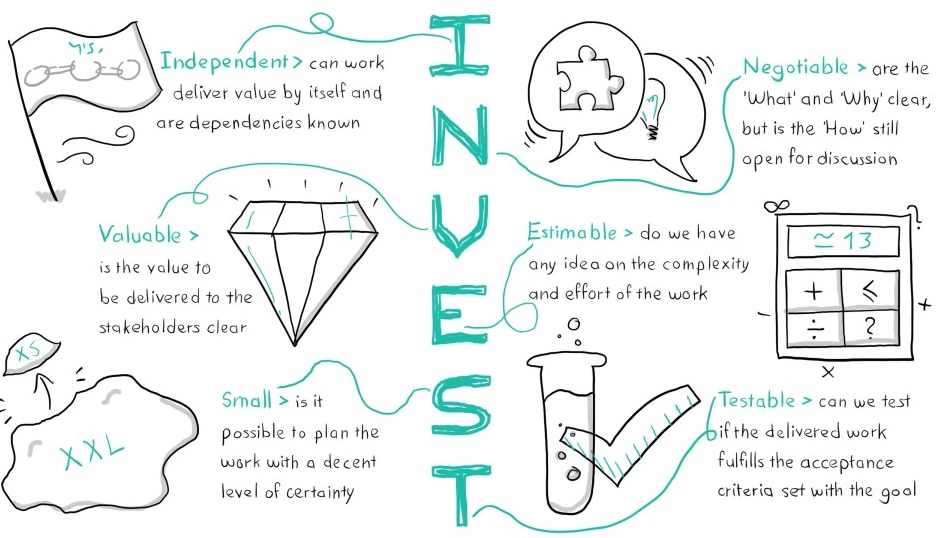 I
N
V
E
S
T
Independent > can work
deliver value by itself and
are dependencies known
Negotiable > are the
'What' and 'Why' clear,
but is the 'How' still
open for discussion
Valuable >
is the value to
be delivered to the
stakeholders clear
Estimable > do we have
any idea on the complexity
and effort of the work
∞
?
≃ 13
+ ≤
÷ ?
-
+
x
XS
XXL
Small > is it
possible to plan the
work with a decent
level of certainty
Testable > can we test
if the delivered work
fulfills the acceptance
criteria set with the goal